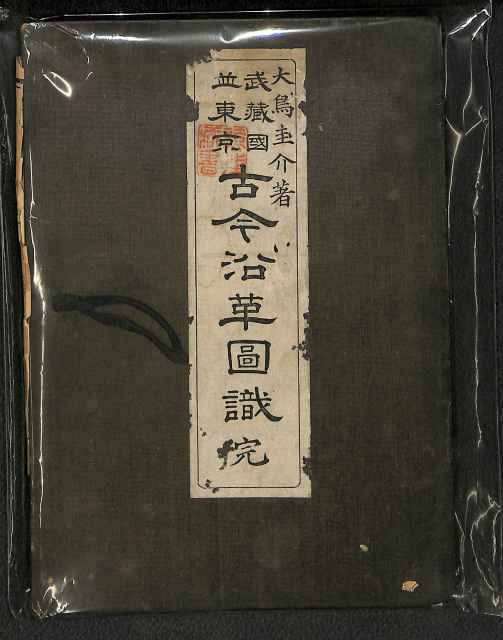 大鳥圭介著
武藏國
並東京
古今沿革圖識 完